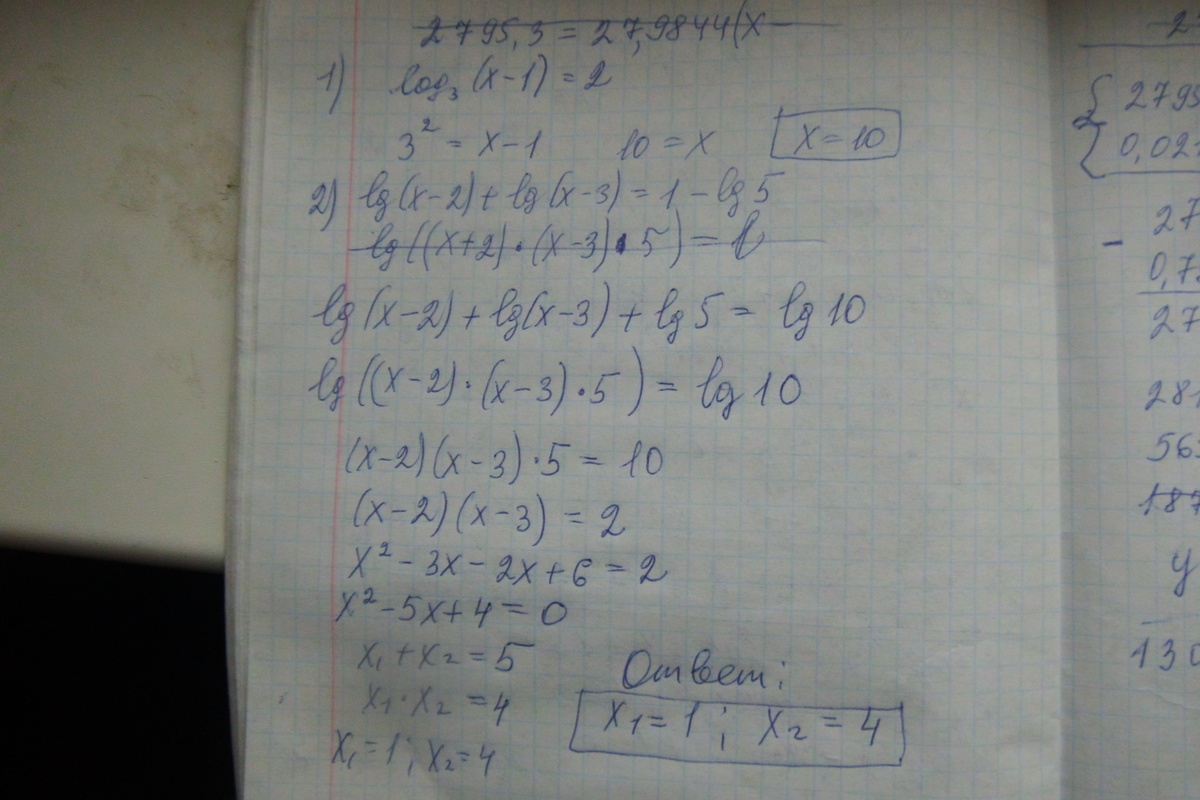 2795,3 = 27,9844(x
1) log₃(x-1) = 2
3² = x-1 10 = x x = 10
2) lg(x-2) + lg(x-3) = 1 - lg5
lg((x+2)·(x-3)·5) = 1
lg(x-2) + lg(x-3) + lg5 = lg10
lg((x-2)·(x-3)·5) = lg10
(x-2)(x-3)·5 = 10
(x-2)(x-3) = 2
x² - 3x - 2x + 6 = 2
x² - 5x + 4 = 0
x₁ + x₂ = 5
x₁ · x₂ = 4
x₁ = 1; x₂ = 4
Ответ:
x₁ = 1; x₂ = 4
2795
0,02
- 27
0,7
27
281
56
187
y
130